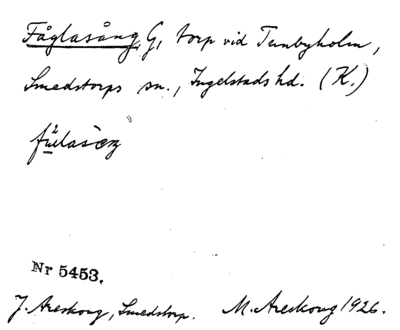 Fåglasång, G, torp vid Tunbyholm,
Smedstorps sn., Ingelstads hd. (K.)
Nr 5453.
J. Areskoug, Smedstorp. M. Areskoug 1926.